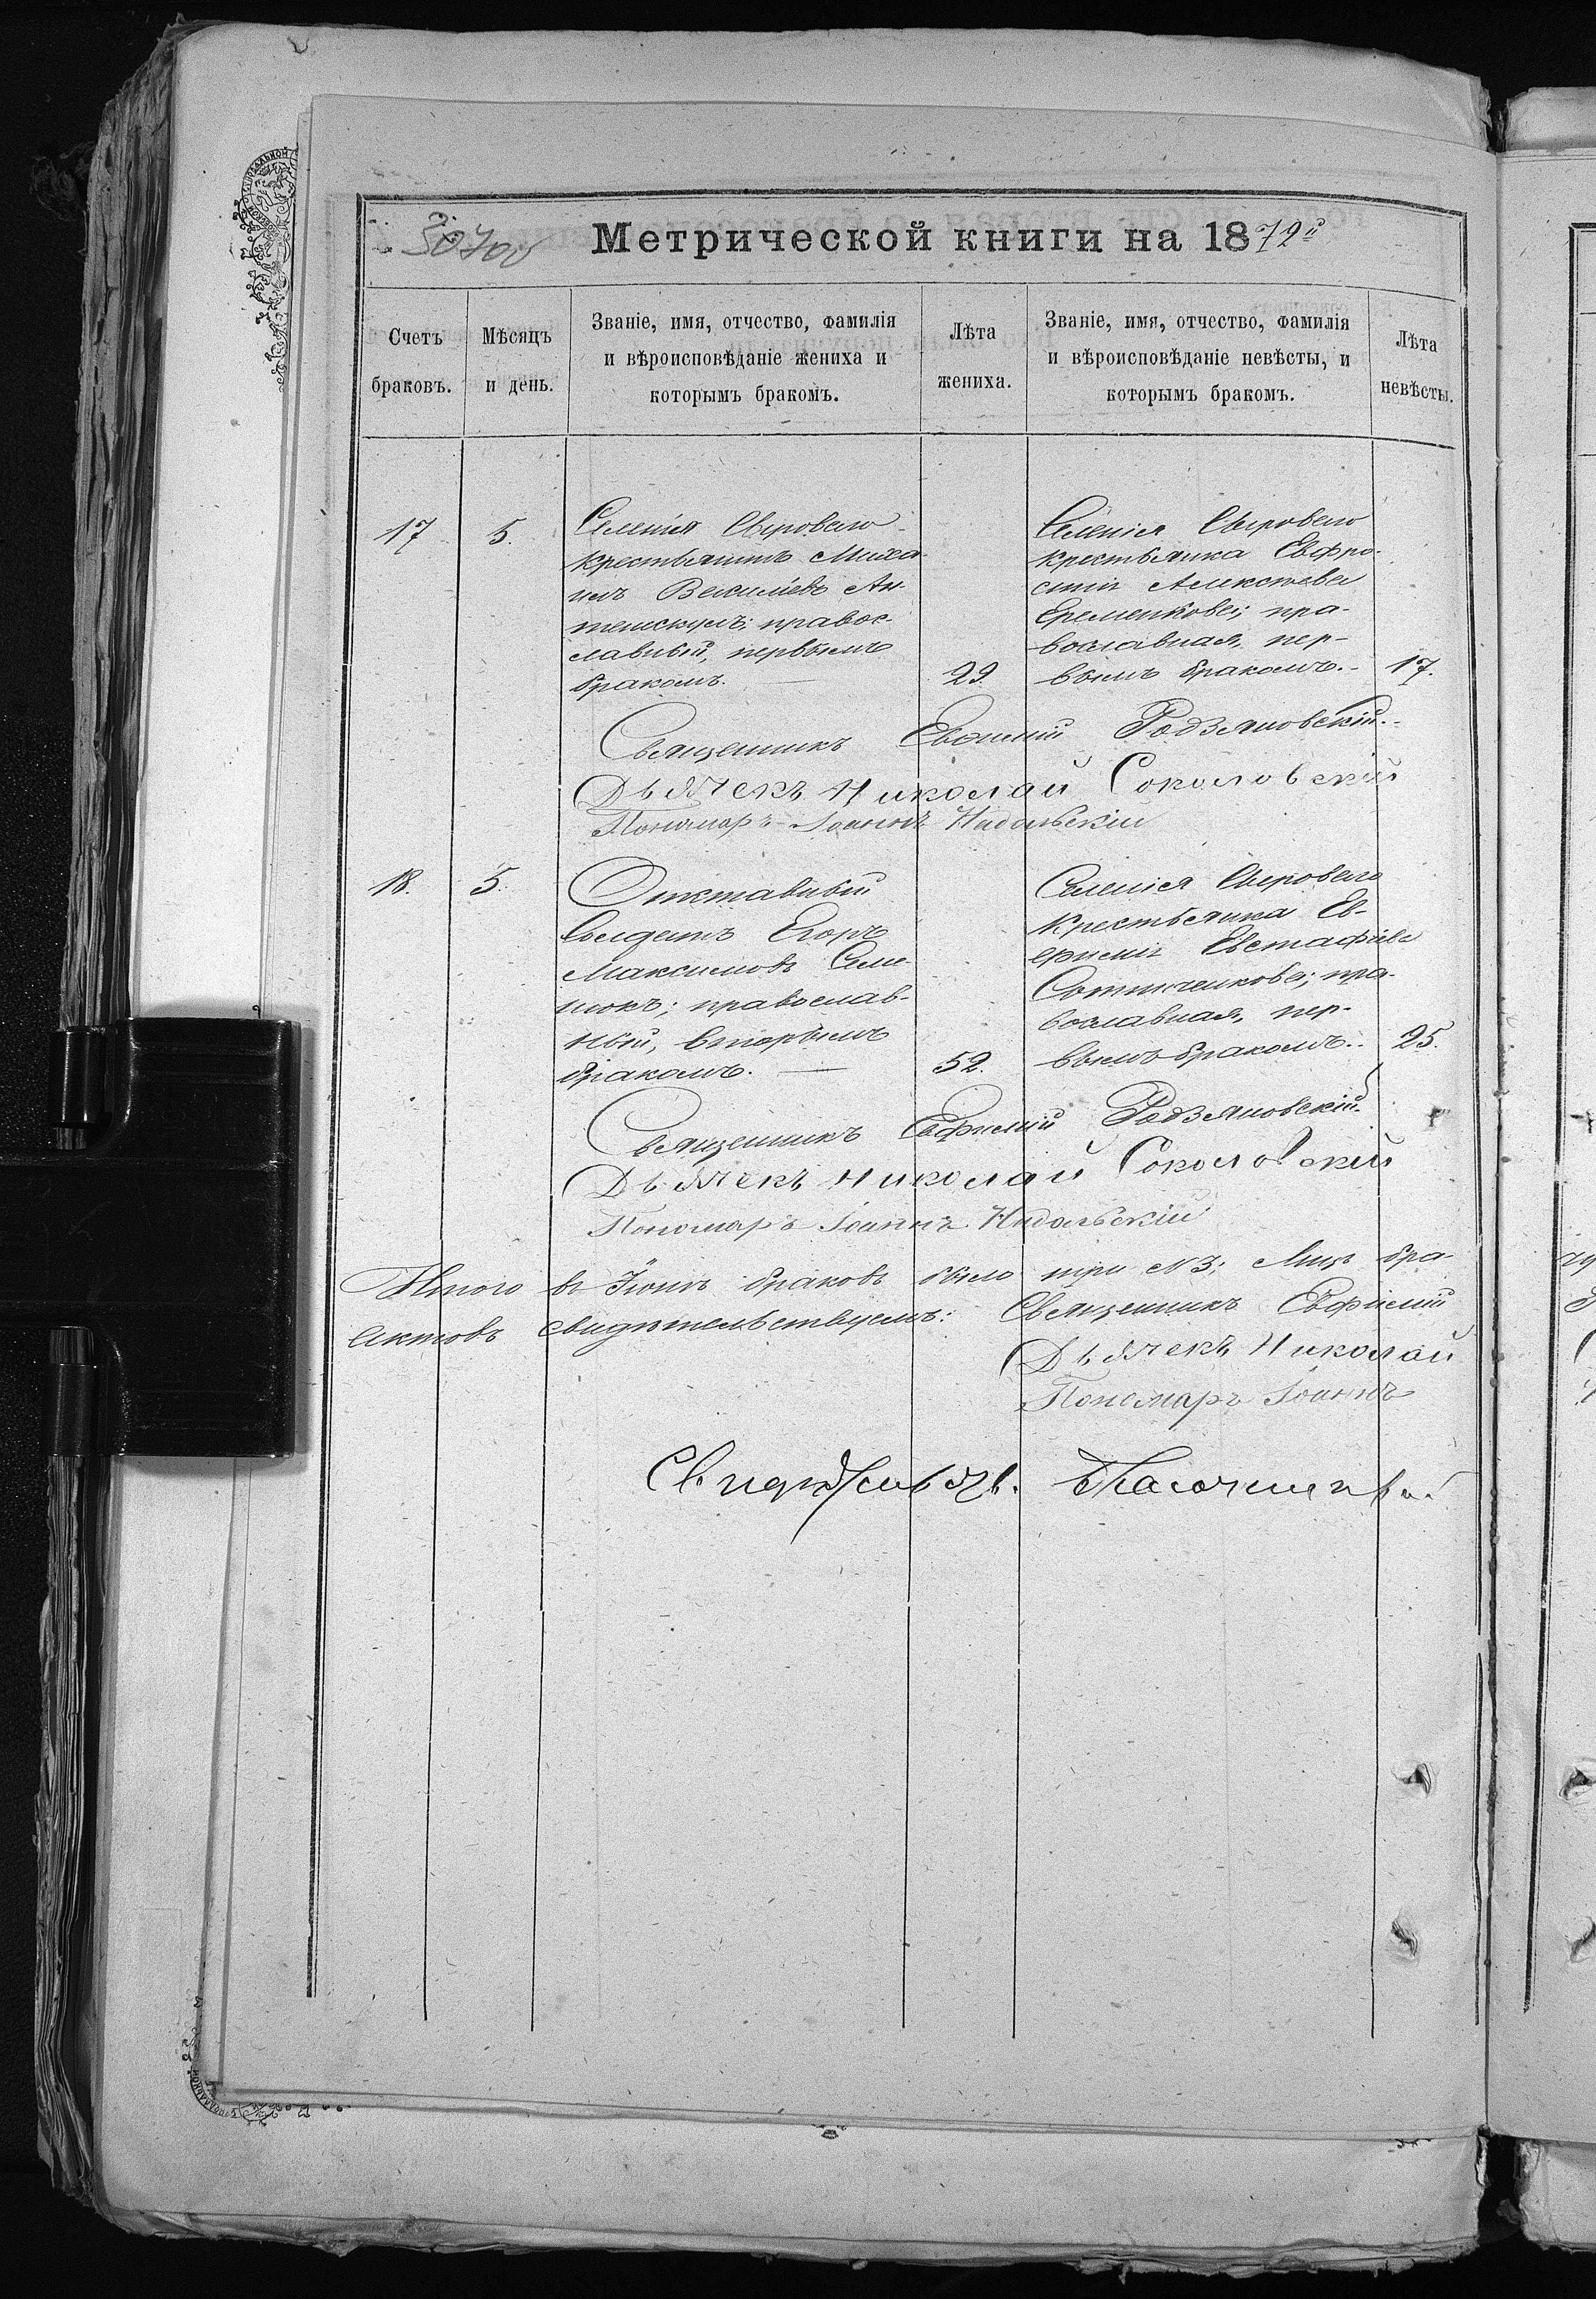 30700 Метрической книги на 1872й
Счетъ браковъ.
Мѣсяцъ и день.
Званіе, имя, отчество, фамилія
и вѣроисповѣданіе жениха и
которымъ бракомъ.
Лѣта
жениха.
Званіе, имя, отчество, фамилія
и вѣроисповѣданіе невѣсты, и
которымъ бракомъ.
Лѣта
невѣсты.
17
5.
Селенія Сыроваго
крестьянинъ Миха-
илъ Василіевъ
православ-
славный, первымъ
бракомъ.
29.
Селенія Сыроваго
крестьянка Евфро-
синія Алексѣева
Еременкова; пра-
вославная, пер-
вымъ бракомъ.
17.
Священникъ Евфимій Родзяновскій.
Дьячекъ Николай Соколовскій
Пономаръ Іоаннъ Надольскій
18.
5.
Отставный
Солдатъ Егоръ
Максимовъ Семе-
нюкъ; православ-
ный, вторымъ
бракомъ.
52.
Селенія Сыроваго
крестьянка Ев-
фимія Евстафіева
Сотниченкова; пра-
вославная, пер-
вымъ бракомъ.
25.
Священникъ Евфимій Родзяновскій.
Дьячекъ Николай Соколовскій
Пономаръ Іоаннъ Надольскій
Итого въ Іюнѣ браковъ было три №3;
актовъ свидѣтельствуемъ: Священникъ Евфимій
Дьячекъ Николай
Пономаръ Іоаннъ